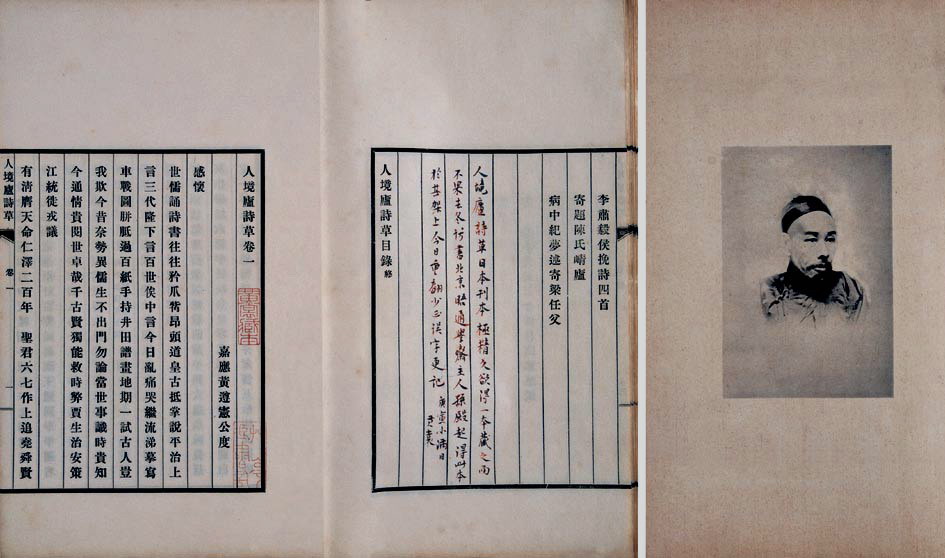 李肅毅侯挽詩四首
寄題陳氏崝廬
病中紀夢述寄梁任父
人境廬詩草日本刊本極精久欲得一本藏之而
不果去冬訪書北京通學齋主人孫殿起得此本
於其架上今日重翻少正誤字更記
庚寅小滿日
人境廬詩草目錄終
人境廬詩草卷一
嘉應黃遵憲公度
黃裳藏本
感懷
世儒誦詩書往往矜爪觜昂頭道皇古抵掌說平治上
言三代隆下言百世俟中言今日亂痛哭繼流涕摹寫
車戰圖胼胝過百紙手持井田譜畫地期一試古人豈
我欺今昔奈勢異儒生不出門勿論當世事識時貴知
今通情貴閱世卓哉千古賢獨能救時弊賈生治安策
江統徙戎議
有清膺天命仁澤二百年 聖君六七作上追堯舜賢
人境廬詩草 卷一 一